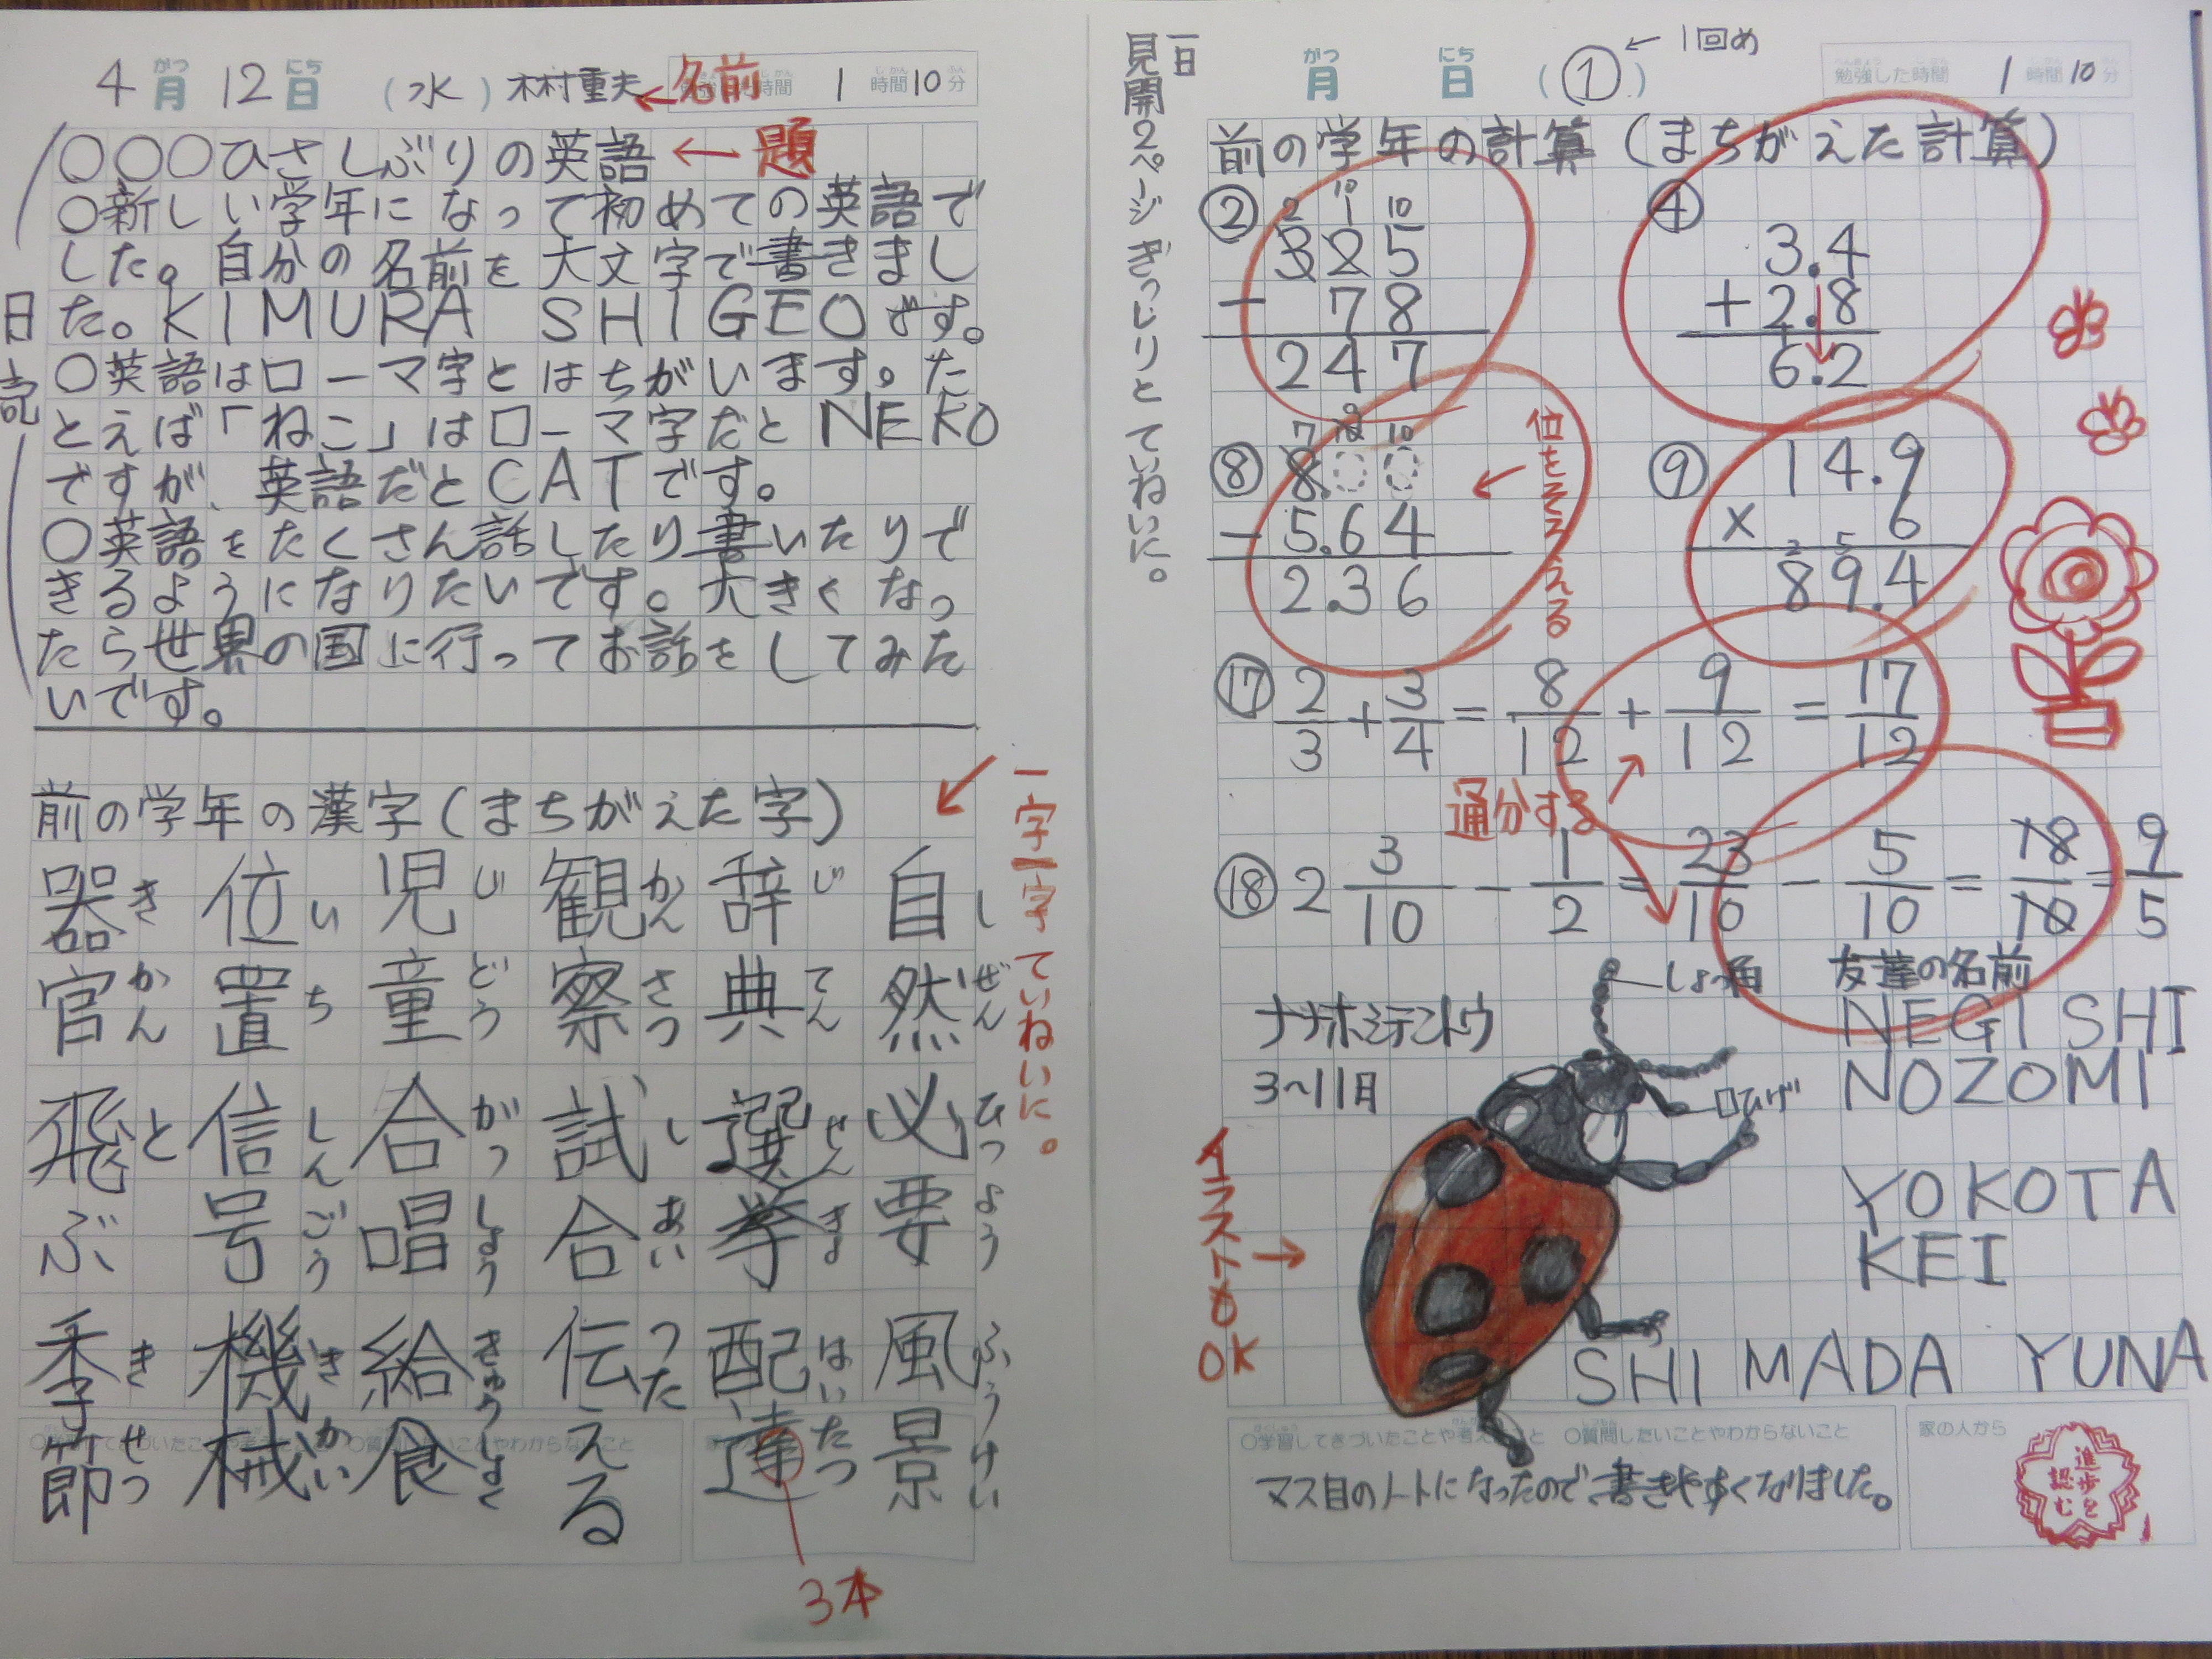 4月12日(水)木村重夫
がつ にち
←名前
勉強した時間 1時間10分
○○○ひさしぶりの英語
←題
○新しい学年になって初めての英語で
した。自分の名前を大文字で書きまし
た。KIMURA SHIGEOです。
○英語はローマ字とはちがいます。た
とえば「ねこ」はローマ字だとNEKO
ですが、英語だとCATです。
○英語をたくさん話したり書いたりで
きるようになりたいです。大きくなっ
たら世界の国に行ってお話をしてみた
いです。
日記
前の学年の漢字(まちがえた字)
一字一字ていねいに。
自然 しぜん
必要 ひつよう
風景 ふうけい
辞典 じてん
選挙 せんきょ
配達 はいたつ
観察 かんさつ
試合 しあい
伝える つた
児童 じどう
合唱 がっしょう
給食 きゅうしょく
位置 いち
信号 しんごう
機械 きかい
器官 きかん
飛ぶ と
季節 きせつ
3本
一日
見開2ページぎっしりとていねいに。
月 日(①)
がつ にち
←1回め
勉強した時間 1時間10分
前の学年の計算(まちがえた計算)
② 2 10 1 10
325
− 78
247
④ 3.4
+2.8
6.2
⑧ 7 9 10 10
8.00
−5.64
2.36
位をそろえる
⑨ 14.9
× 6
2 5
89.4
⑰ 2/3+3/4=8/12+9/12=17/12
通分する
⑱ 2 3/10−1/2=23/10−5/10=18/10=9/5
しょっ角
友達の名前
ナナホシテントウ
3~11月
口ひげ
NEGISHI
NOZOMI
YOKOTA
KEI
SHIMADA YUNA
イラストもOK
○学習してきづいたことや考えたこと ○質問したいことやわからないこと
マス目のノートになったので、書きやすくなりました。
家の人から
進歩を認む